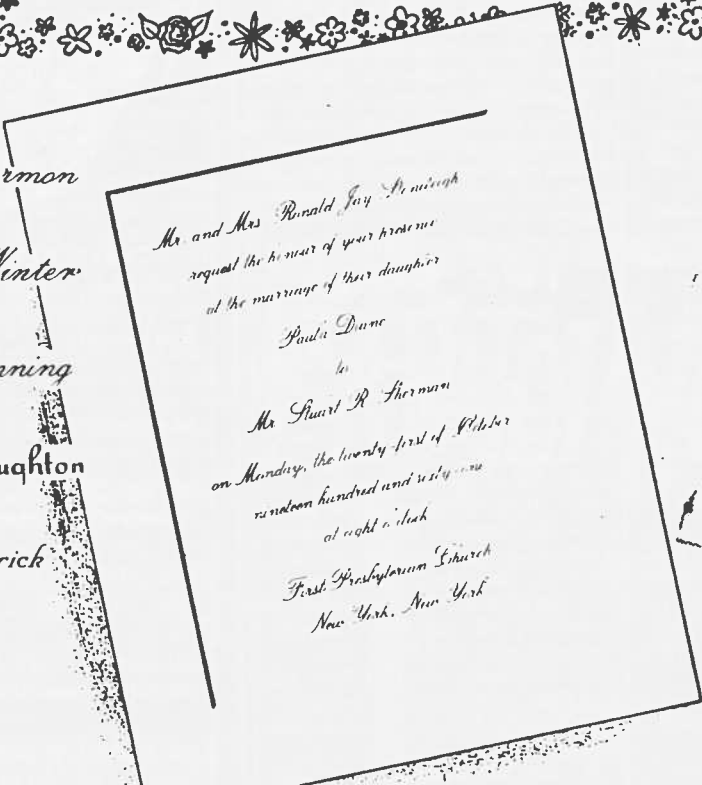 rmon
Winter
nning
ughton
rick
Mr. and Mrs. Ronald Jay
request the honour of your presence
at the marriage of their daughter
Paula Diane
to
Mr. Stuart R. Sherman
on Monday, the twenty-first of October
nineteen hundred and sixty
at eight o'clock
First Presbyterian Church
New York, New York